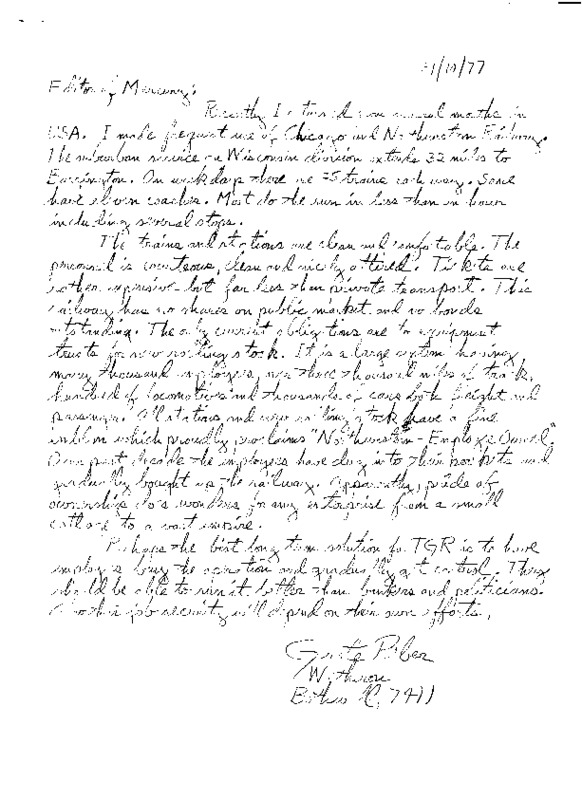 /10/77
Editor of Mercury:
Recently I returned from several months in
USA. I made frequent use of Chicago and Northwestern Railway.
The suburban service on Wisconsin division extends 32 miles to
Barrington. On weekdays there are 35 trains each way. Some
have eleven coaches. Most do the run in less than an hour
including several stops.
The trains and stations are clean and comfortable. The
personnel is courteous, clean and nicely attired. Tickets are
rather expensive but far less than private transport. This
railway has no shares on public market and no bonds
outstanding. The only current obligations are to equipment
trusts for new rolling stock. It is a large system having
many thousand employees, over three thousand miles of track,
hundred of locomotives and thousands of cars both freight and
passenger. All stations and new rolling stock have a fine
emblem which proudly proclaims "Northwestern - Employee Owned."
Over past decade the employees have dug into their pockets and
gradually bought up the railway. Apparently, pride of
ownership does wonders for any enterprise from a small
cottage to a vast empire.
Perhaps the best long term solution for TGR is to have
employees buy the operation and gradually get control. They
should be able to run it better than bankers and politicians.
their job security will depend on their own efforts.
7411